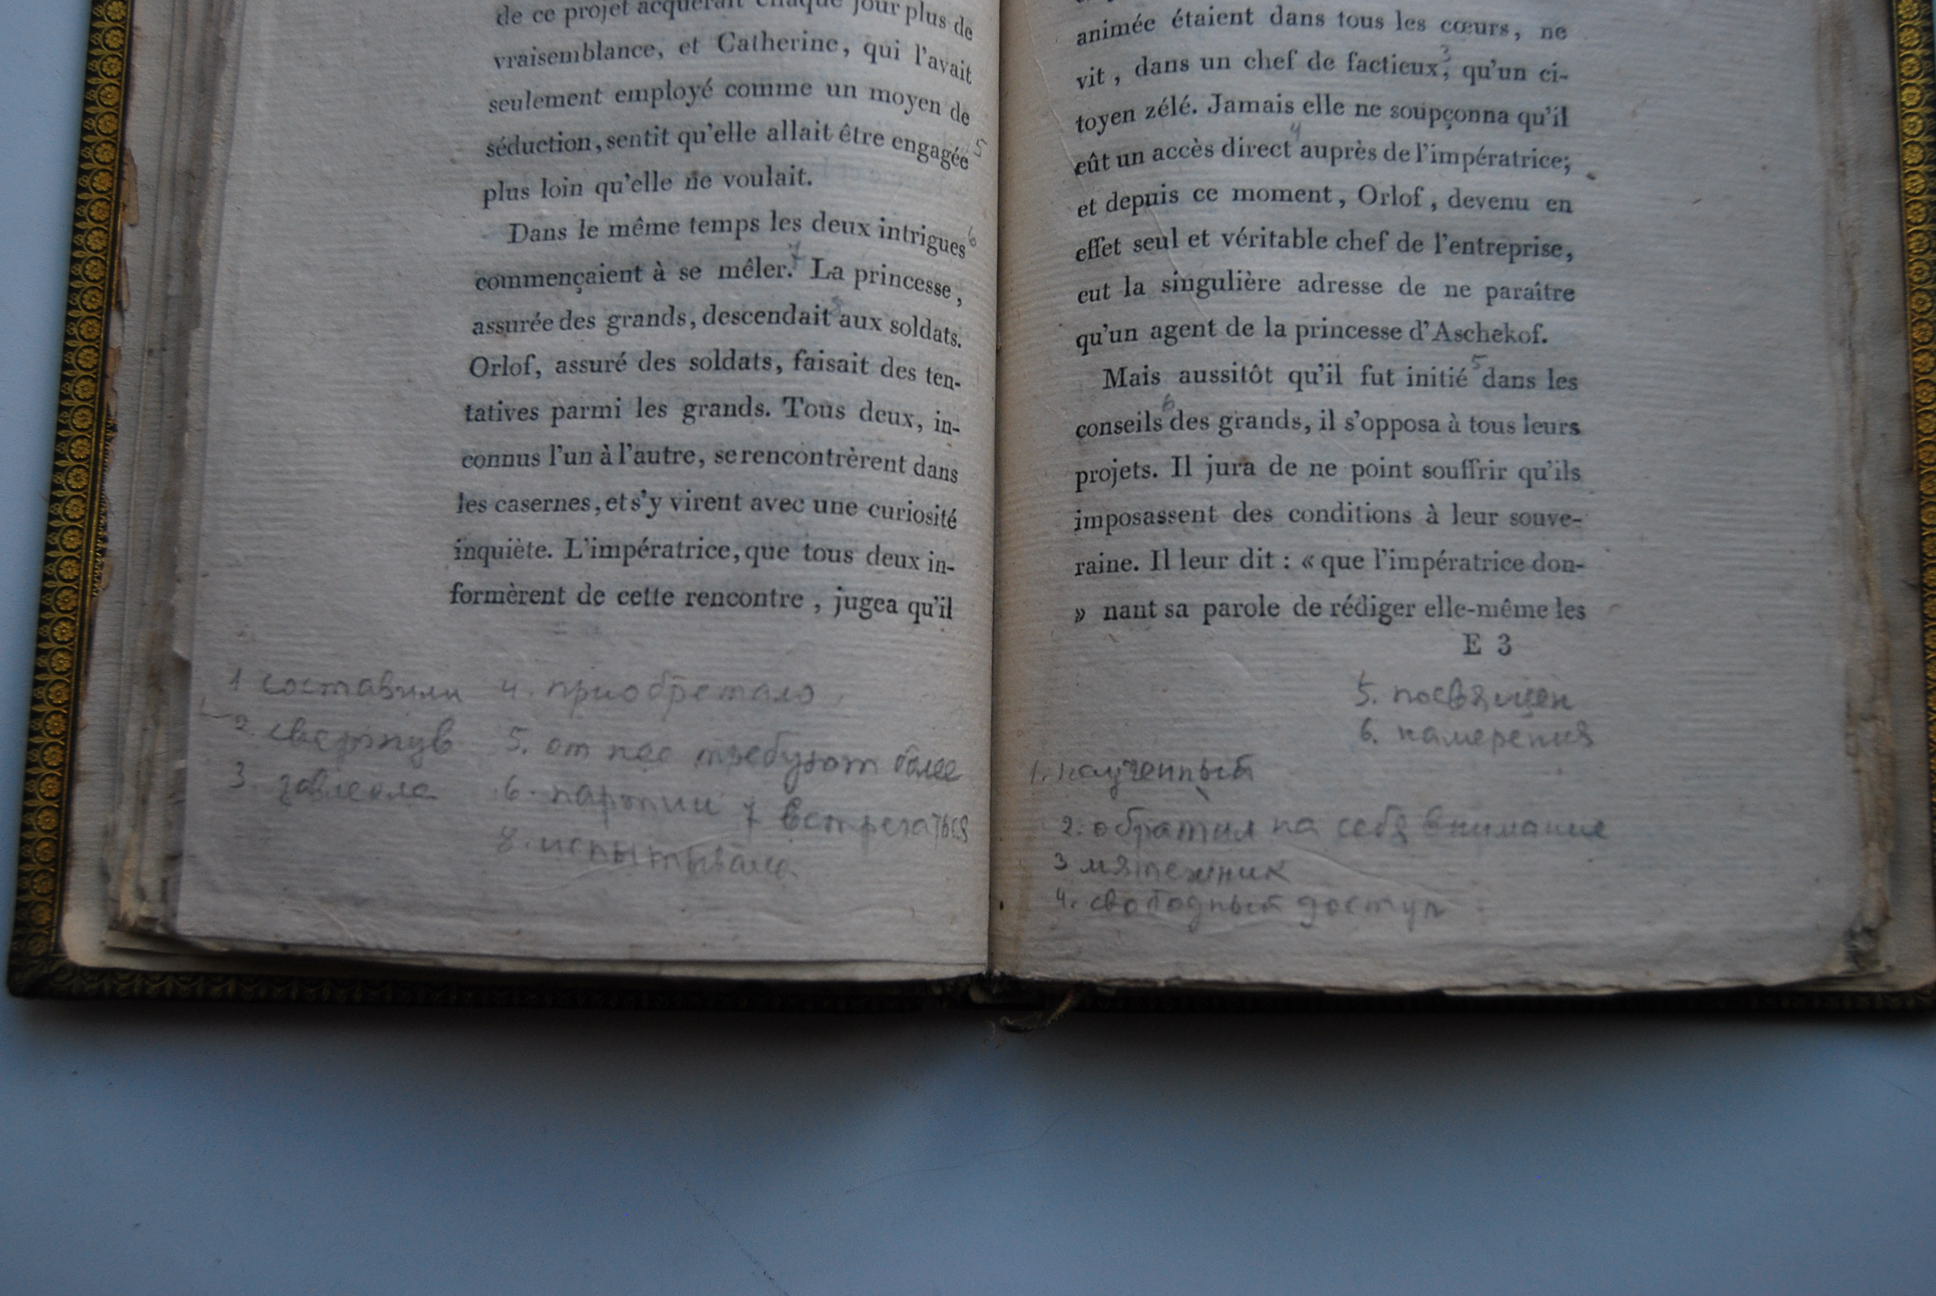 de ce projet acquérait chaque jour plus de
vraisemblance, et Catherine, qui l'avait
seulement employé comme un moyen de
séduction, sentit qu'elle allait être engagée 5
plus loin qu'elle ne voulait.
Dans le même temps les deux intrigues 6
commençaient à se mêler. 7 La princesse,
assurée des grands, descendait aux soldats.
Orlof, assuré des soldats, faisait des ten-
tatives parmi les grands. Tous deux, in-
connus l'un à l'autre, se rencontrèrent dans
les casernes, et s'y virent avec une curiosité
inquiète. L'impératrice, que tous deux in-
formèrent de cette rencontre, jugea qu'il
1 составили
2. свергнув
3.
4. приобретало
5. от нее требуют более
6. партии 7 встречаться
8. испытывала
animée étaient dans tous les cœurs, ne
vit, dans un chef de factieux 3, qu'un ci-
toyen zélé. Jamais elle ne soupçonna qu'il
eût un accès direct 4 auprès de l'impératrice;
et depuis ce moment, Orlof, devenu en
effet seul et véritable chef de l'entreprise,
eut la singulière adresse de ne paraître
qu'un agent de la princesse d'Aschekof.
Mais aussitôt qu'il fut initié 5 dans les
conseils 6 des grands, il s'opposa à tous leurs
projets. Il jura de ne point souffrir qu'ils
imposassent des conditions à leur souve-
raine. Il leur dit : « que l'impératrice don-
» nant sa parole de rédiger elle-même les
E 3
5. посвящен
6. намерения
1. наученный
2. обратил на себя внимание
3 мятежник
4. свободный доступ